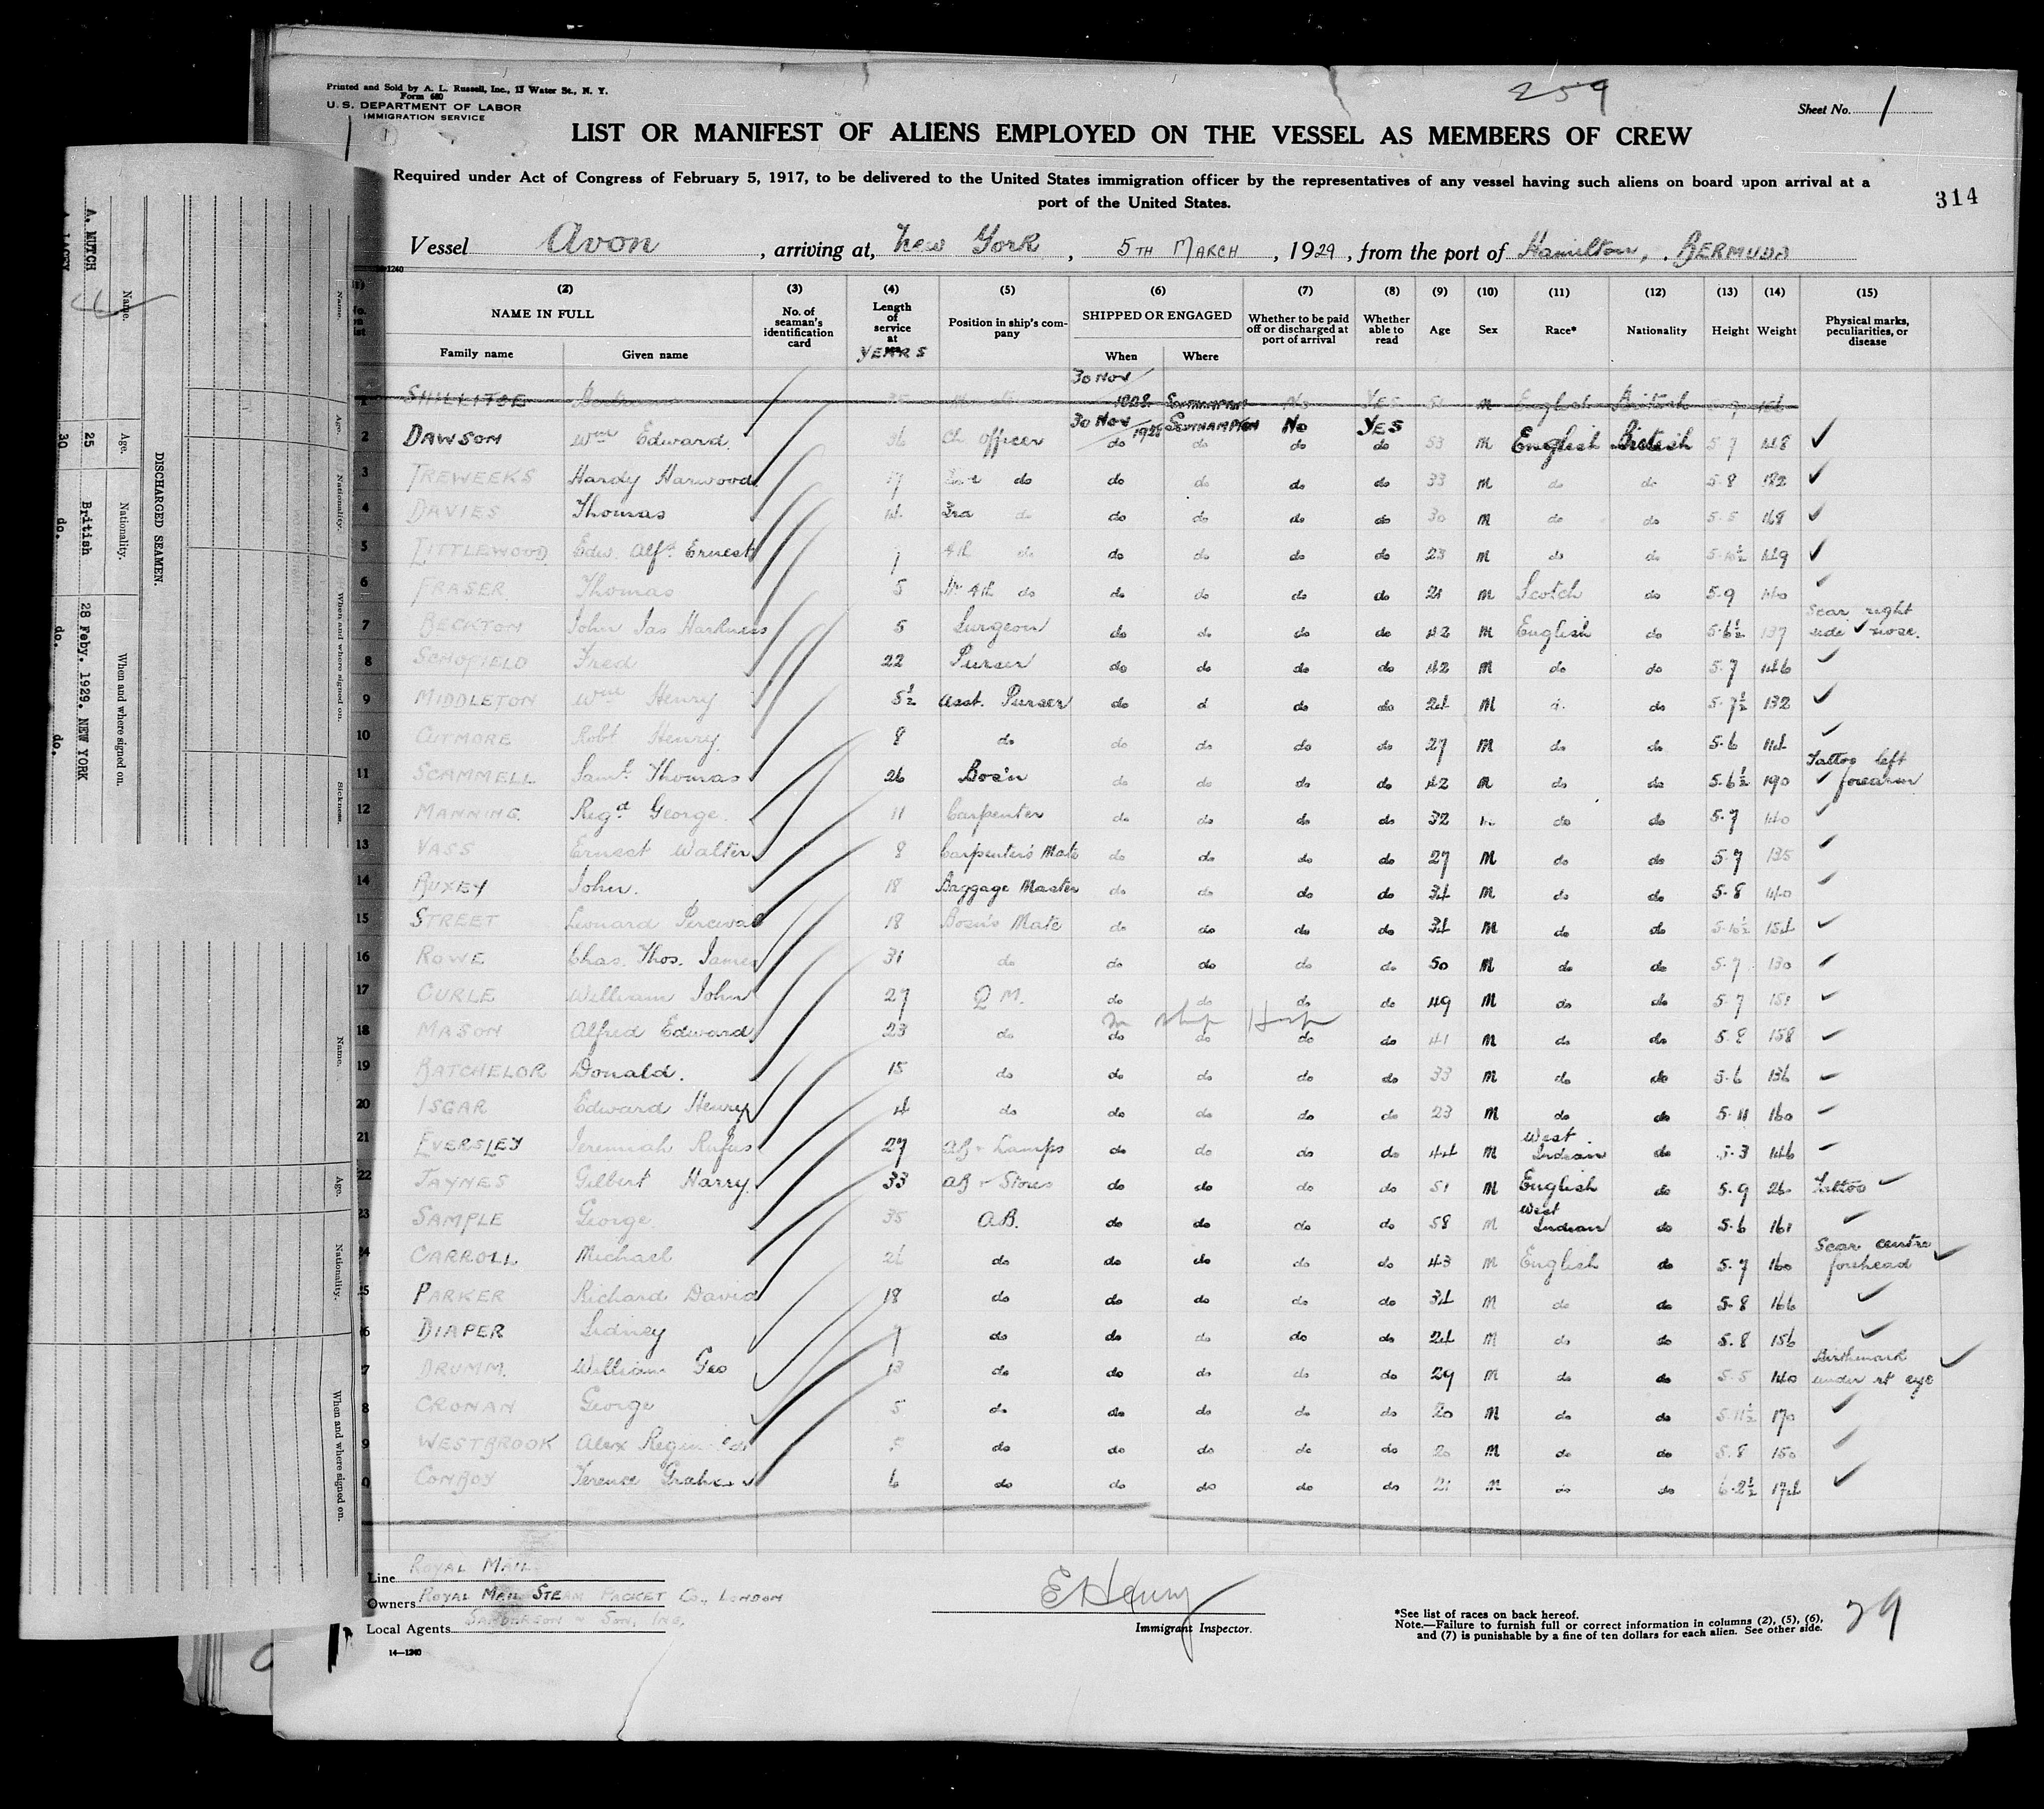 Printed and Sold by A. L. Russell, Inc., 13 Water St., N. Y.
Form 680
U. S. DEPARTMENT OF LABOR
IMMIGRATION SERVICE
259
Sheet No. 1
LIST OR MANIFEST OF ALIENS EMPLOYED ON THE VESSEL AS MEMBERS OF CREW
Required under Act of Congress of February 5, 1917, to be delivered to the United States immigration officer by the representatives of any vessel having such aliens on board upon arrival at a
port of the United States.
314
Vessel Avon, arriving at, New York, 5TH MARCH, 1929, from the port of Hamilton, BERMUDA
(2) (3) (4) (5) (6) (7) (8) (9) (10) (11) (12) (13) (14) (15)
NAME IN FULL
Family name Given name
No. of seaman's identification card
Length of service at YEARS
Position in ship's company
SHIPPED OR ENGAGED
When Where
Whether to be paid off or discharged at port of arrival
Whether able to read
Age Sex Race* Nationality Height Weight
Physical marks, peculiarities, or disease
30 Nov
1 SHILLITOE 1928 SOUTHAMPTON No YES M English British
30 Nov 1928 SOUTHAMPTON No YES
2 DAWSON Wm Edward 36 Ch Officer do do do do 53 M English British 5 7 148
3 TREWEEKS Hardy Harwood 17 do do do do do 33 M do do 5 8 182
4 DAVIES Thomas 14 3rd do do do do do 30 M do do 5.5 168
5 LITTLEWOOD Edw. Alfd Ernest 7 4th do do do do do 23 M do do 5.10½ 149
6 FRASER Thomas 5 Jr 4th do do do do do 21 M Scotch do 5.9 140
7 BECKTON John Jas Harkness 5 Surgeon do do do do 42 M English do 5.6½ 137 Scar right side nose.
8 SCHOFIELD Fred 22 Purser do do do do 42 M do do 5.7 146
9 MIDDLETON Wm Henry 5½ Asst. Purser do d do do 24 M do do 5.7½ 132
10 CUTMORE Robt Henry 8 do do do do do 27 M do do 5.6 144
11 SCAMMELL Saml Thomas 26 Bos'n do do do do 42 M do do 5.6½ 190 Tattoo left forearm
12 MANNING Regd George 11 Carpenter do do do do 32 M do do 5.7 140
13 VASS Ernest Walter 8 Carpenter's Mate do do do do 27 M do do 5.7 135
14 BUXEY John. 18 Baggage Master do do do do 34 M do do 5.8 140
15 STREET Leonard Percival 18 Bosn's Mate do do do do 34 M do do 5.10½ 154
16 ROWE Chas. Thos. James 31 do do do do do 50 M do do 5.7 130
17 CURLE William John 27 Q M. do do do do 49 M do do 5.7 151
In ship Hosp
18 MASON Alfred Edward 23 do do do do do 41 M do do 5.8 158
19 BATCHELOR Donald. 15 do do do do do 33 M do do 5.6 136
20 ISGAR Edward Henry 4 do do do do do 23 M do do 5.11 160
21 EVERSLEY Jeremiah Rufus 27 AB + Lamps do do do do 44 M West Indian do 5.3 146
22 JAYNES Gilbert Harry 33 AB + Stores do do do do 51 M English do 5.9 Tattoo
23 SAMPLE George 35 A.B. do do do do 58 M West Indian do 5.6 161
24 CARROLL Michael 26 do do do do do 43 M English do 5.7 160 Scar centre forehead
25 PARKER Richard David 18 do do do do do 34 M do do 5.8 166
26 DIAPER Sidney 9 do do do do do 24 M do do 5.8 156
7 DRUMM. William Geo 13 do do do do do 29 M do do 5.5 140 Birthmark under rt eye
8 CRONAN George 5 do do do do do 20 M do do 5.11½ 170
9 WESTBROOK Alex do do do do do 20 M do do 5.8 150
0 CONROY Terence Graham 6 do do do do do 21 M do do 6.2½ 174
Line ROYAL MAIL
Owners ROYAL MAIL STEAM PACKET CO., LONDON
Local Agents SANDERSON & SON, INC.
14—1240
E Henry
Immigrant Inspector.
*See list of races on back hereof.
Note.—Failure to furnish full or correct information in columns (2), (5), (6),
and (7) is punishable by a fine of ten dollars for each alien. See other side.
29
DISCHARGED SEAMEN.
Name. Age. Nationality. When and where signed on.
A. MUTCH 25 British 28 Feby. 1929. NEW YORK
A. LACEY 30 do. do. do.
Name. Age. Nationality. When and where signed on. Sickness.
Name. Age. Nationality. When and where signed on.